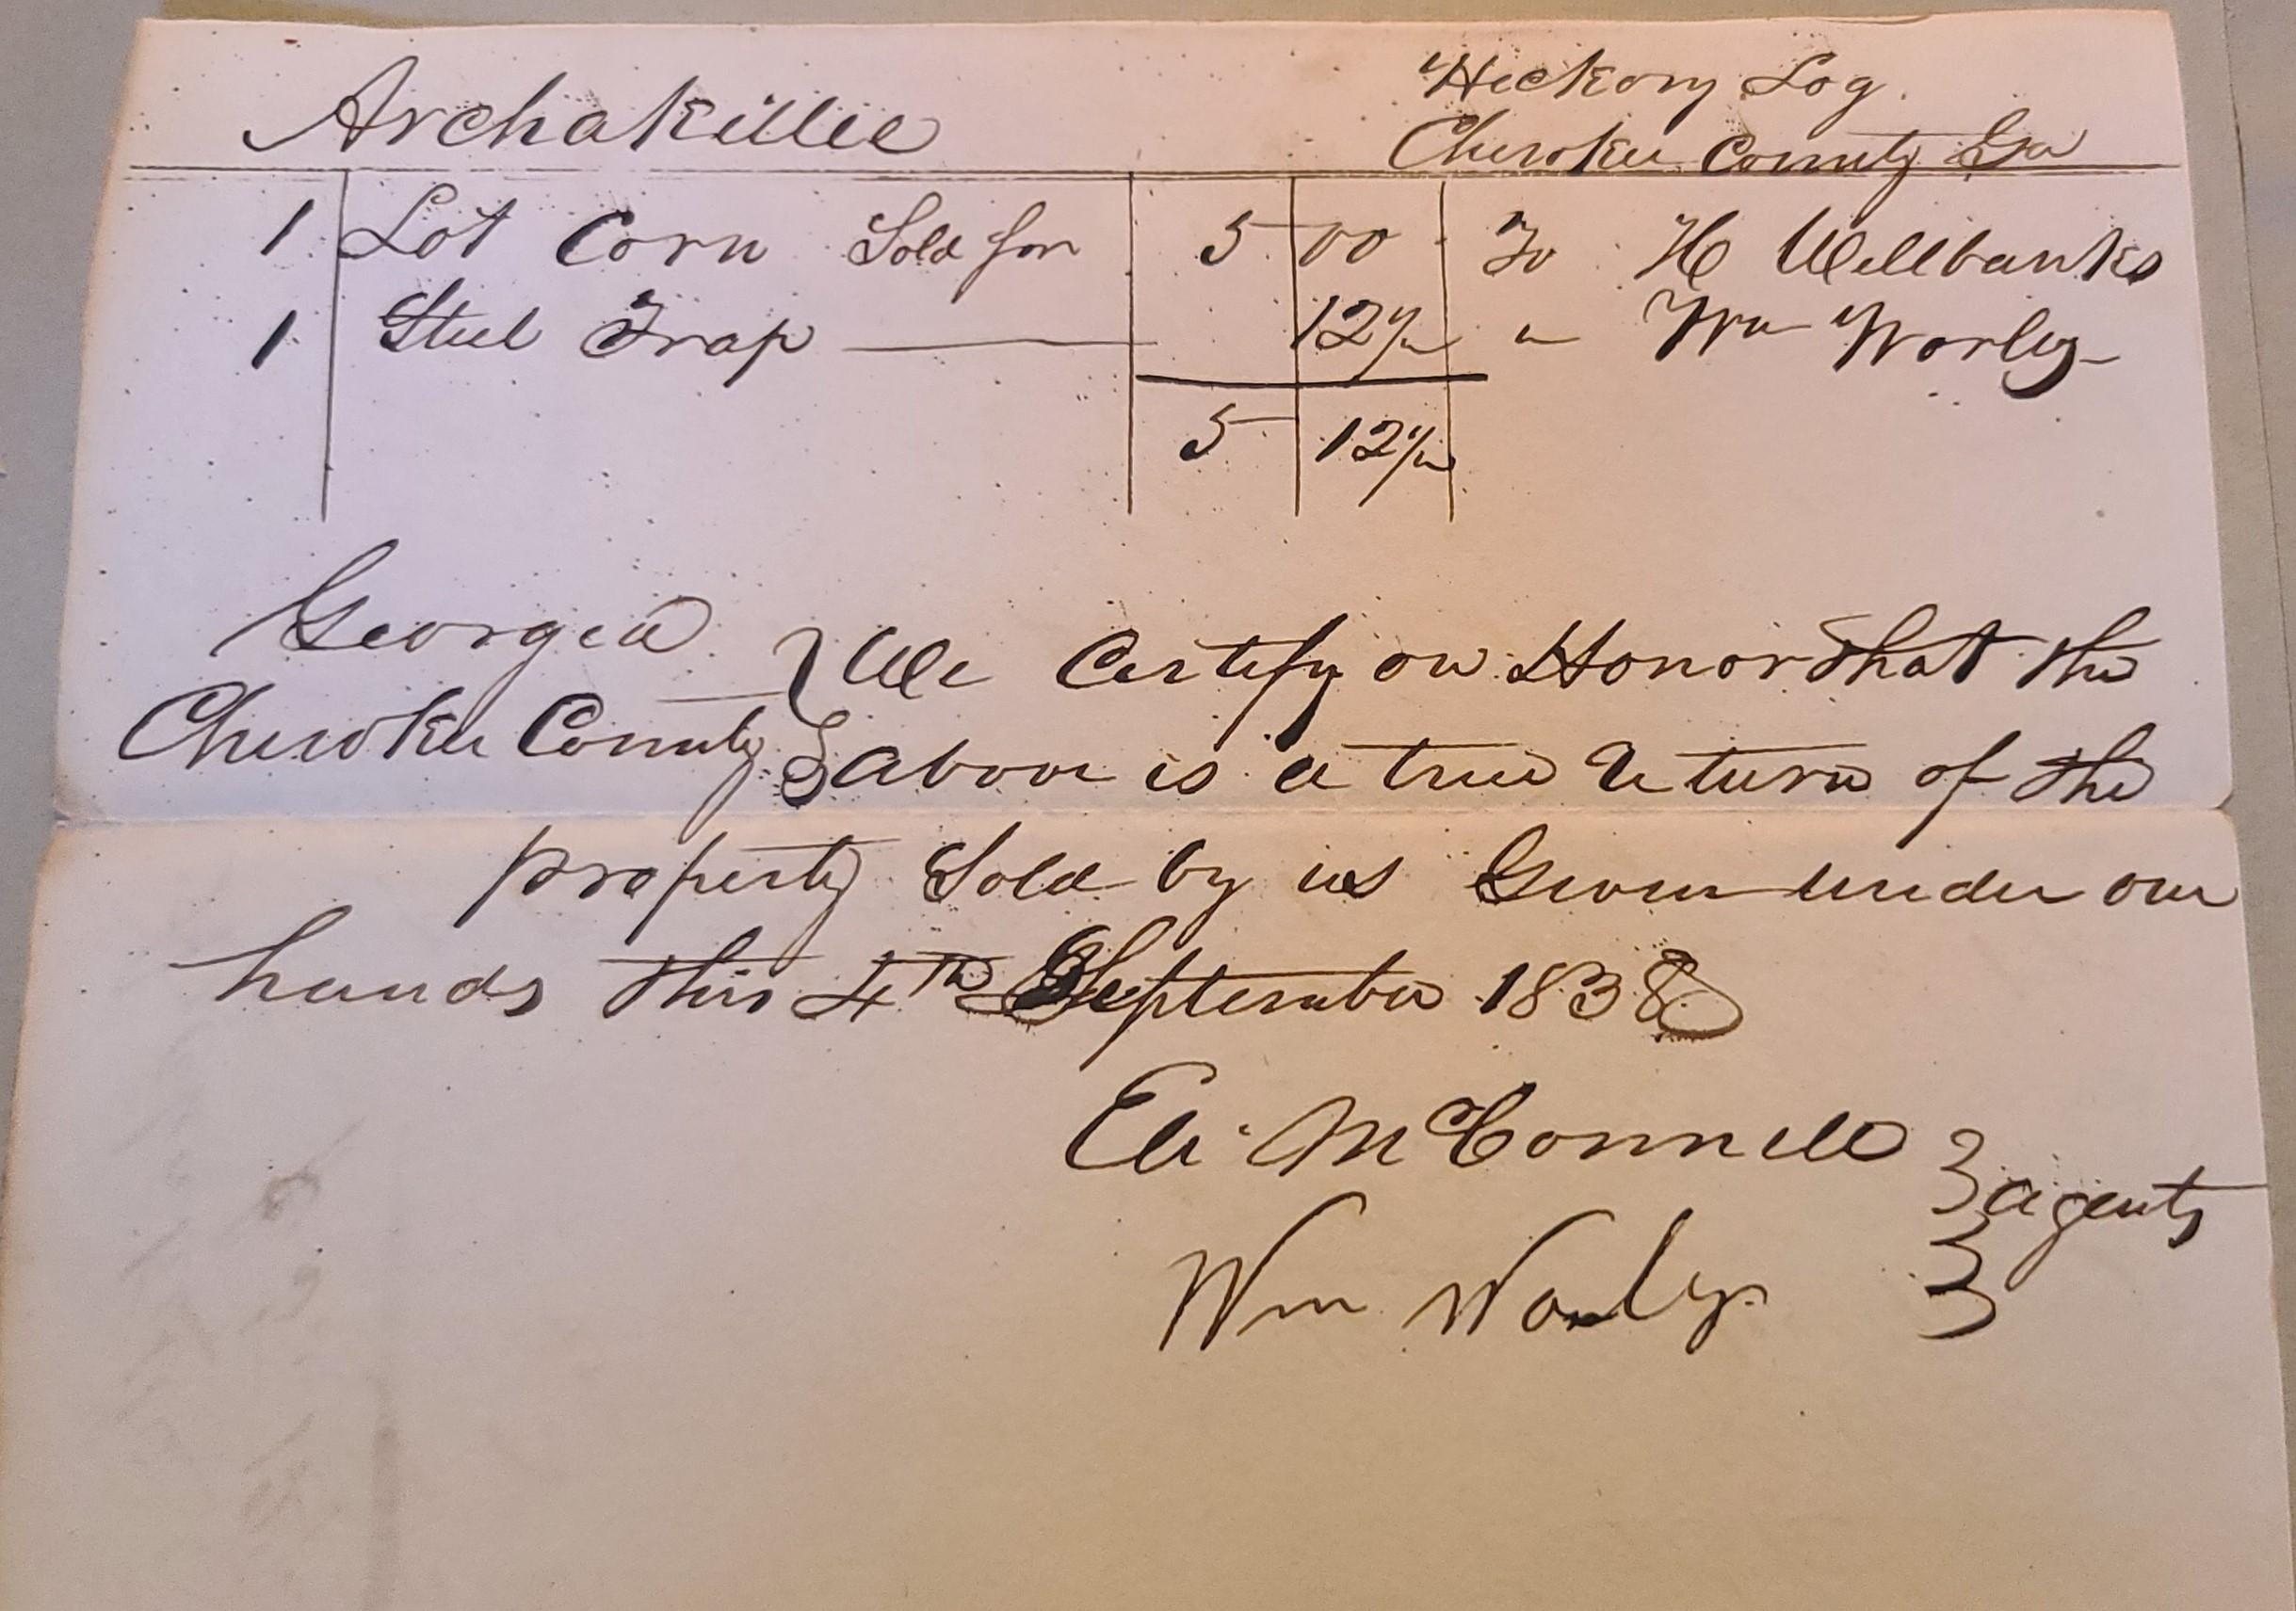 Archakillee
Hickory Log
Cherokee County Ga
1 Lot Corn Sold for 5 00 To H Wellbanks
1 Steel Trap — 12½ " Wm Worley
5 12½
Georgia
Cherokee County
We Certify on Honor that the
above is a true Return of the
property Sold by us Given under our
hands this 4th September 1838
Eli McConnell
agents
Wm Worley